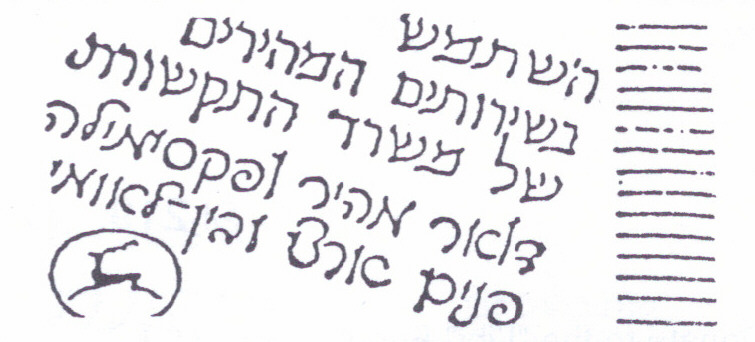 השתמש
בשירותים המהירים
של משרד התקשורת
דואר מהיר ופקסימילה
פנים ארצי ובין-לאומי